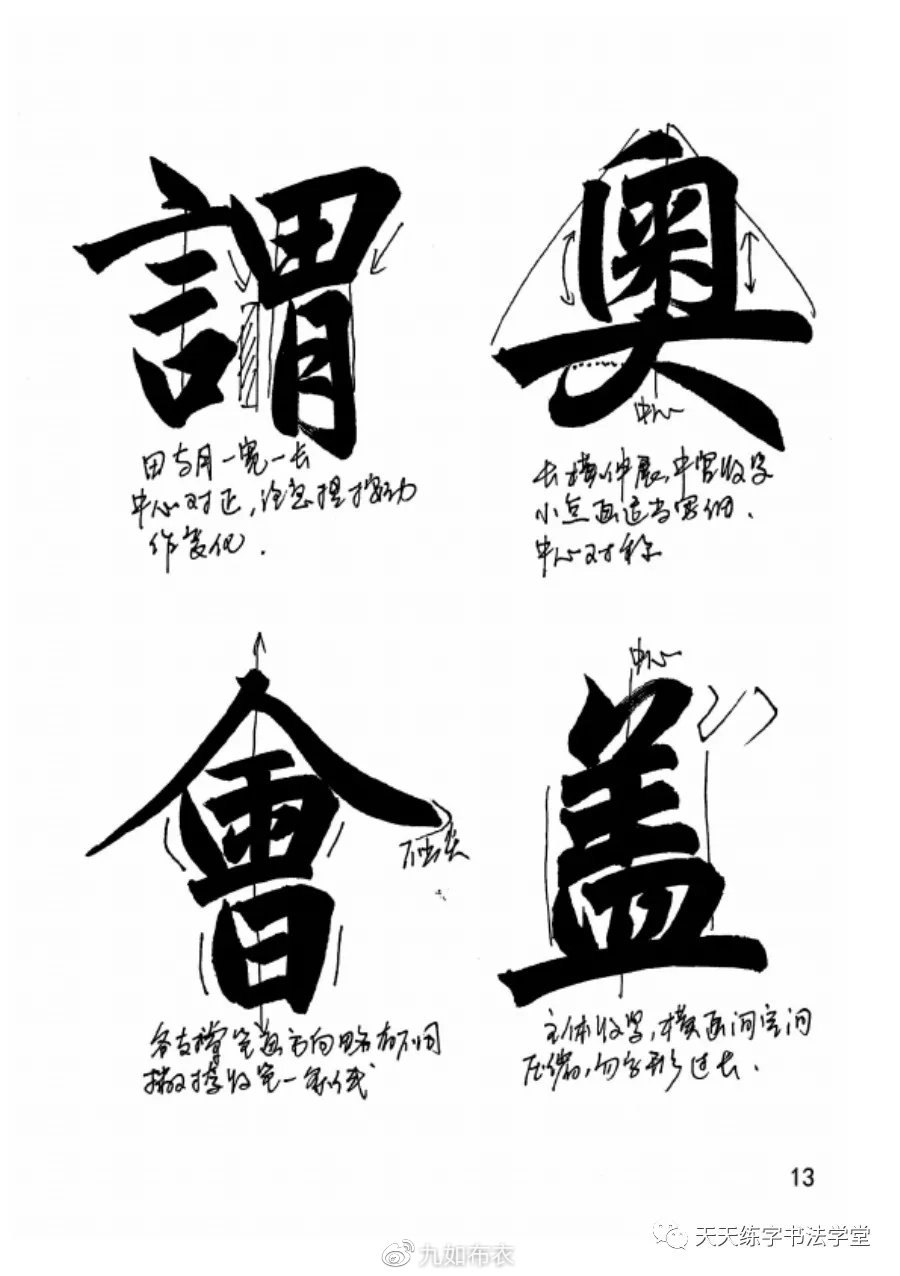 謂
田与月一宽一长
中心对正，注意提按动
作变化.
奥
中心
长横伸展，中宫收紧
小点画适当写细.
中心对称
會
不出尖
各支撑笔画方向略有不同
撇捺收笔一条线
中心
盖
主体收紧，横画间空间
压缩，勿字形过长.
13
天天练字书法学堂
九如布衣